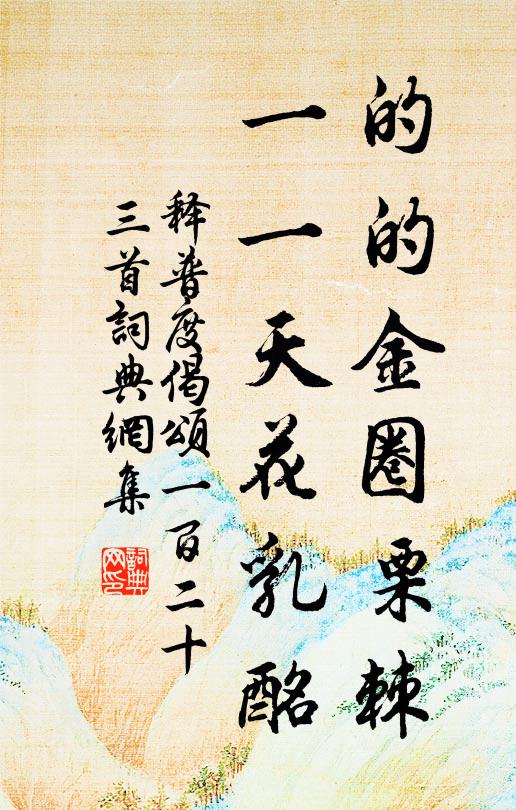 的的金圈栗棘
一一天花乳酪
释普度偈頌一百二十
三首詞典網集
詞典网印